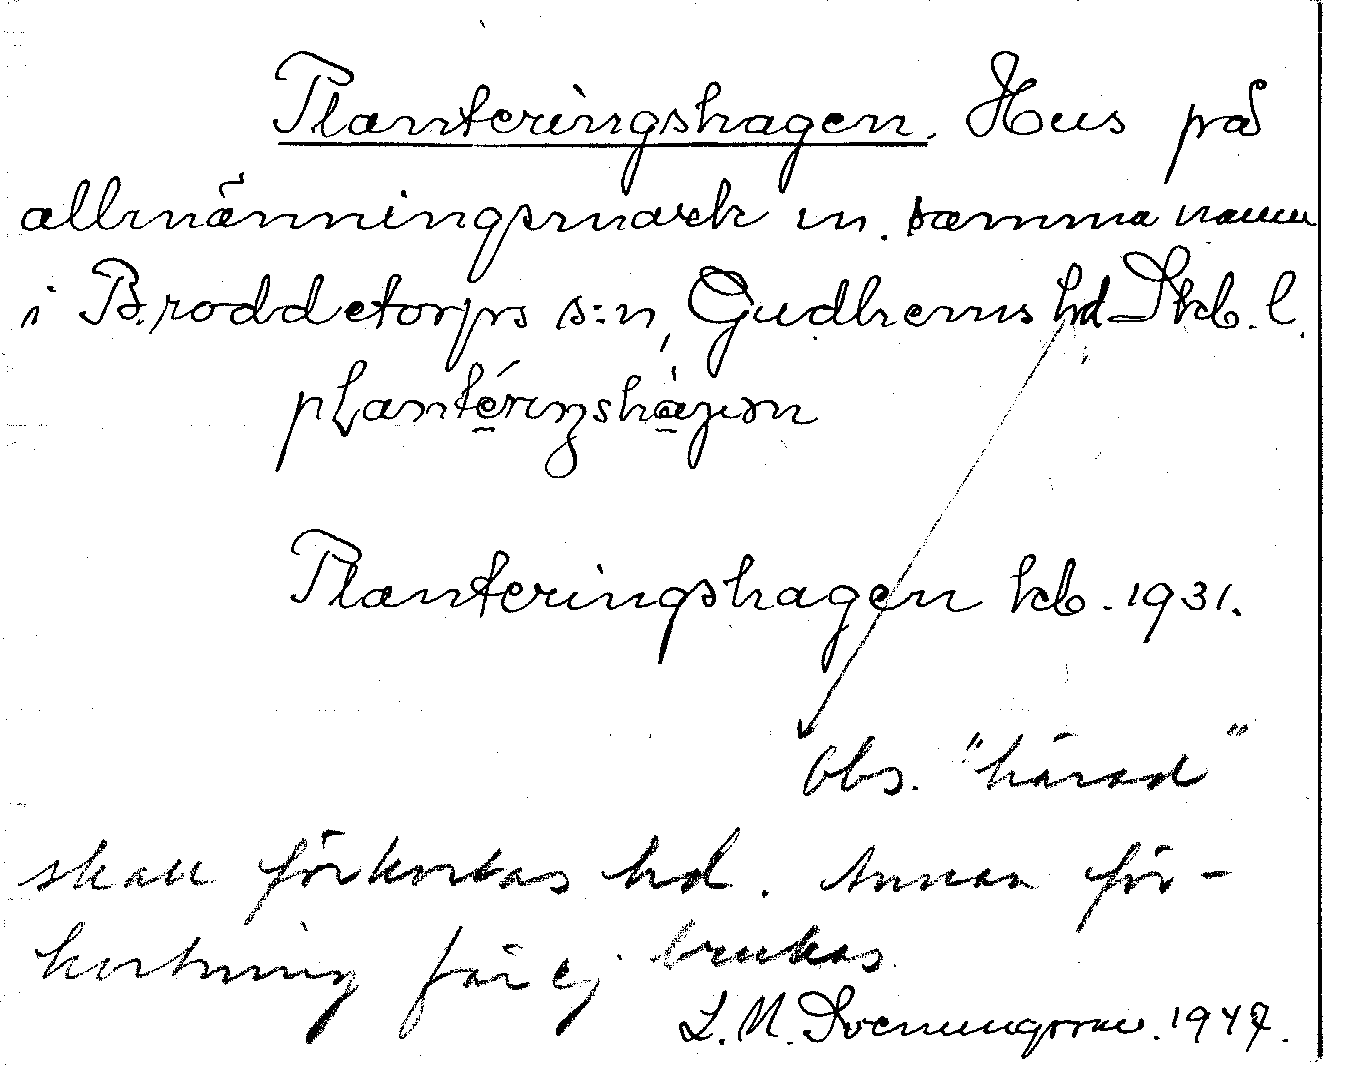 Planteringshagen. Hus på
allmänningsmark m. samma namn
i Broddetorps s:n, Gudhems hd Skb. l.
plantéringshàgen
Planteringshagen kb. 1931.
Obs. "härad"
skall förkortas hd. Annan för-
kortning får ej brukas.
L. M. Svenungsson. 1947.